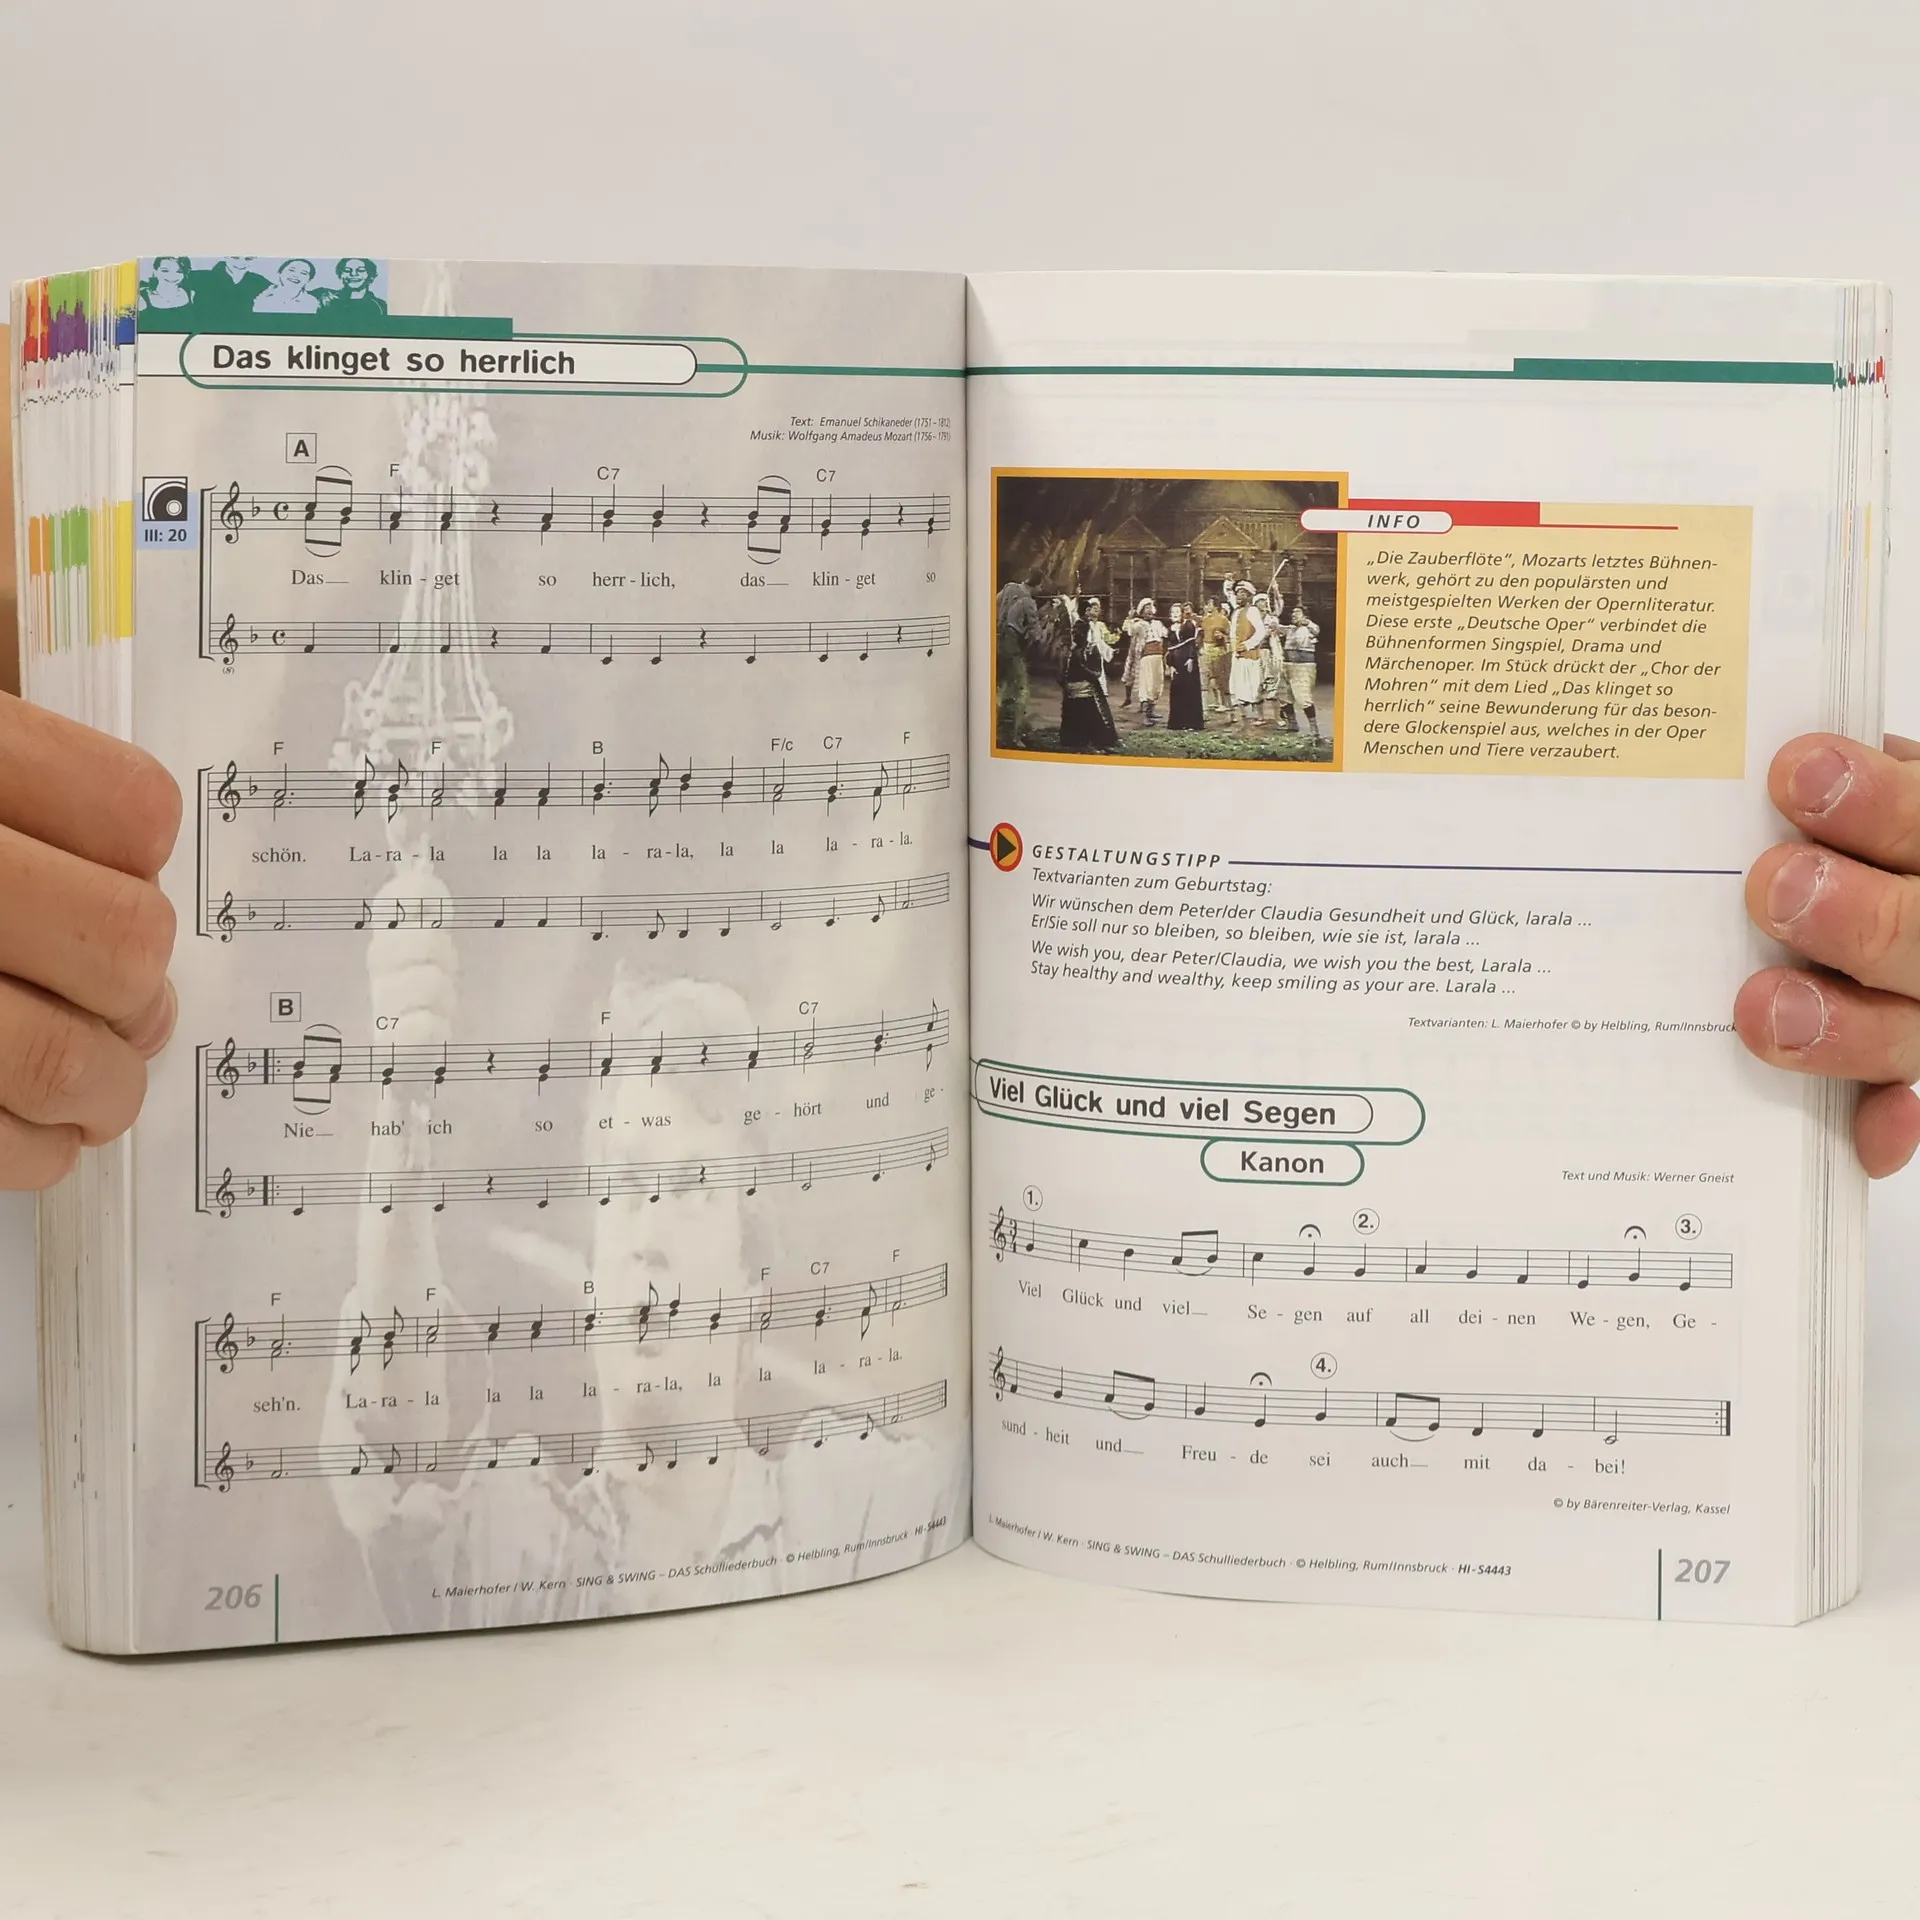 Das klinget so herrlich
Text: Emanuel Schikaneder (1751–1812)
Musik: Wolfgang Amadeus Mozart (1756–1791)
A
III: 20
F C7 C7
Das klin - get so herr - lich, das klin - get so
(8)
F F B F/c C7 F
schön. La - ra - la la la la - ra - la, la la la - ra - la.
B
C7 F C7
Nie hab' ich so et - was ge - hört und ge -
F F B F C7 F
seh'n. La - ra - la la la la - ra - la, la la la - ra - la.
206
L. Maierhofer / W. Kern · SING & SWING – DAS Schulliederbuch · © Helbling, Rum/Innsbruck · HI-S4443
INFO
„Die Zauberflöte“, Mozarts letztes Bühnen-
werk, gehört zu den populärsten und
meistgespielten Werken der Opernliteratur.
Diese erste „Deutsche Oper“ verbindet die
Bühnenformen Singspiel, Drama und
Märchenoper. Im Stück drückt der „Chor der
Mohren“ mit dem Lied „Das klinget so
herrlich“ seine Bewunderung für das beson-
dere Glockenspiel aus, welches in der Oper
Menschen und Tiere verzaubert.
GESTALTUNGSTIPP
Textvarianten zum Geburtstag:
Wir wünschen dem Peter/der Claudia Gesundheit und Glück, larala ...
Er/Sie soll nur so bleiben, so bleiben, wie sie ist, larala ...
We wish you, dear Peter/Claudia, we wish you the best, Larala ...
Stay healthy and wealthy, keep smiling as your are. Larala ...
Textvarianten: L. Maierhofer © by Helbling, Rum/Innsbruck
Viel Glück und viel Segen
Kanon
Text und Musik: Werner Gneist
1. 2. 3.
Viel Glück und viel Se - gen auf all dei - nen We - gen, Ge -
4.
sund - heit und Freu - de sei auch mit da - bei!
© by Bärenreiter-Verlag, Kassel
L. Maierhofer / W. Kern · SING & SWING – DAS Schulliederbuch · © Helbling, Rum/Innsbruck · HI-S4443
207